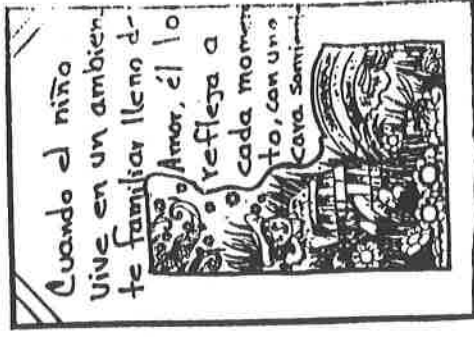 Cuando el niño
vive en un ambien
te familiar lleno d-
Amor, él lo
refleja a
cada momen
to, con una
cara sonri-